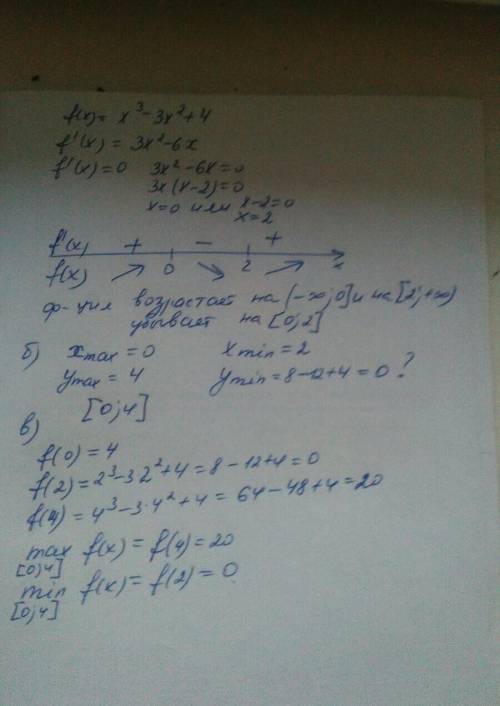 f(x) = x³ - 3x² + 4
f'(x) = 3x² - 6x
f'(x) = 0   3x² - 6x = 0
3x(x-2) = 0
x=0 или x-2=0
x=2
f'(x)   +   -   +
f(x)   ↗   0   ↘   2   ↗   x
ф-ция возрастает на (-∞;0] и на [2;+∞)
убывает на [0;2]
б)   xmax = 0   xmin = 2
ymax = 4   ymin = 8-12+4 = 0 ?
в)   [0;4]
f(0) = 4
f(2) = 2³-3·2²+4 = 8-12+4 = 0
f(4) = 4³-3·4²+4 = 64-48+4 = 20
max f(x) = f(4) = 20
[0;4]
min f(x) = f(2) = 0
[0;4]